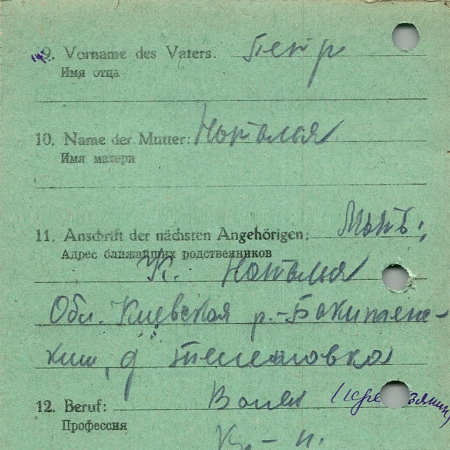 9. Vorname des Vaters. Петр
Имя отца
10. Name der Mutter: Наталья
Имя матери
11. Anschrift der nächsten Angehörigen: Мать:
Адрес ближайших родственников
К. Наталия
Обл. Киевская р.-Ракитян-
ский, д
12. Beruf: (крестьянин)
Профессия